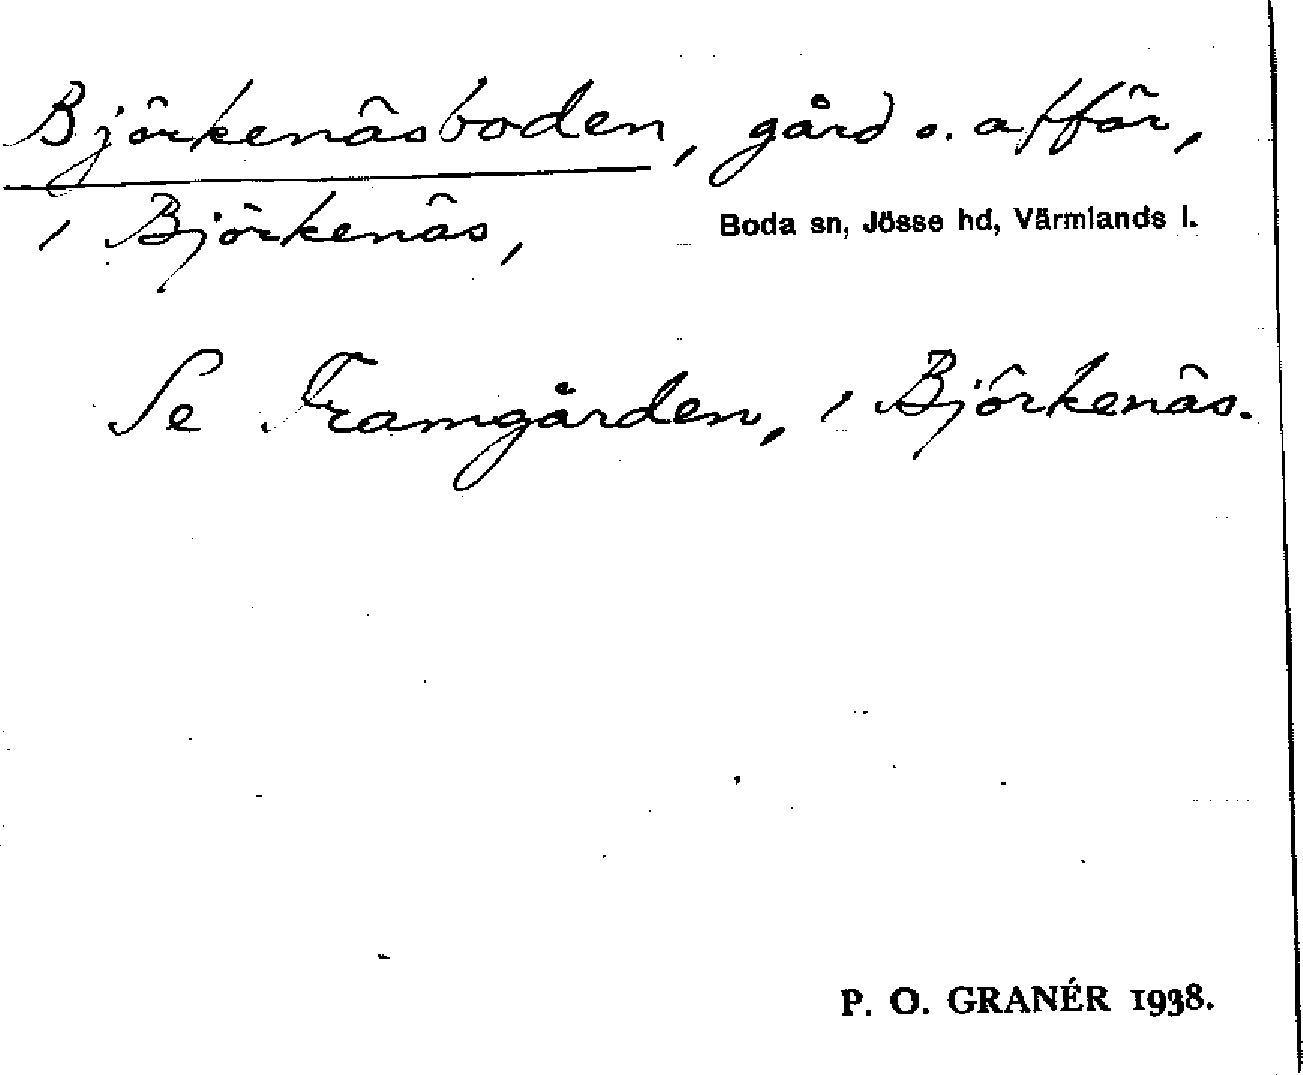 Björkenäsboden, gård o. affär,
i Björkenäs,
Boda sn, Jösse hd, Värmlands l.
Se Framgården, i Björkenäs.
P. O. GRANÉR 1938.